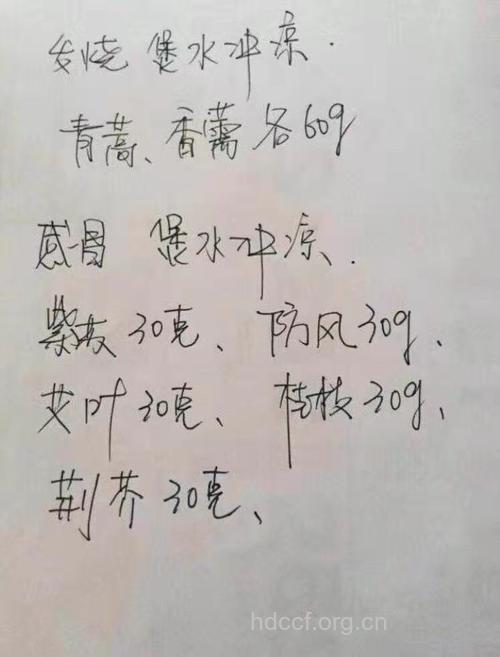 发烧 煲水冲凉.
青蒿、香薷各60g
感冒 煲水冲凉.
紫苏30克、防风30g、
艾叶30克、桂枝30g、
荆芥30克、
hdccf.org.cn